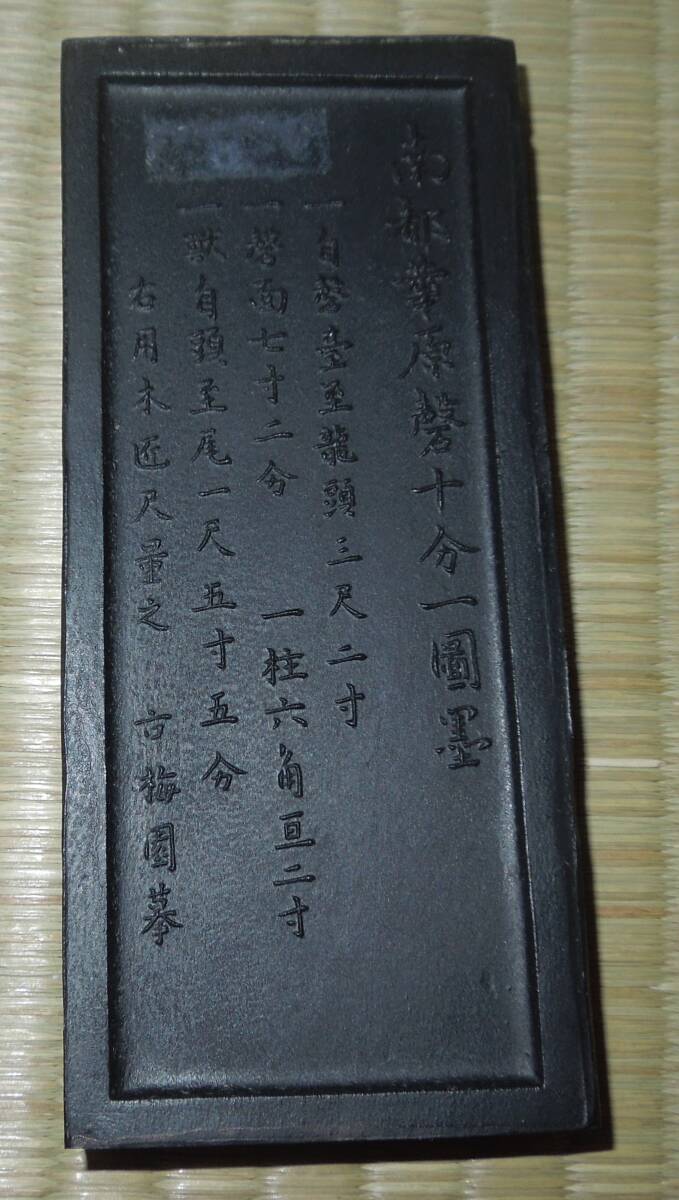 南都華原磬十分一圖墨
一自磬臺至龍頭三尺二寸
一磬面七寸二分 一柱六角亘二寸
一獣自頭至尾一尺五寸五分
右用木匠尺量之 古梅園摹